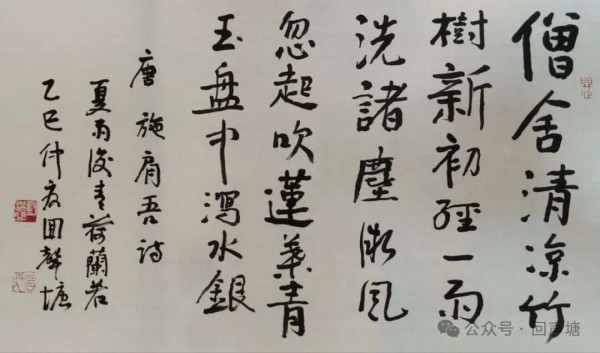 僧舍清凉竹
樹新初經一雨
洗諸塵微風
忽起吹蓮葉青
玉盤中瀉水銀
唐 施肩吾詩
夏雨後青荷蘭若
乙巳仲夏回聲塘
公众号·回声塘